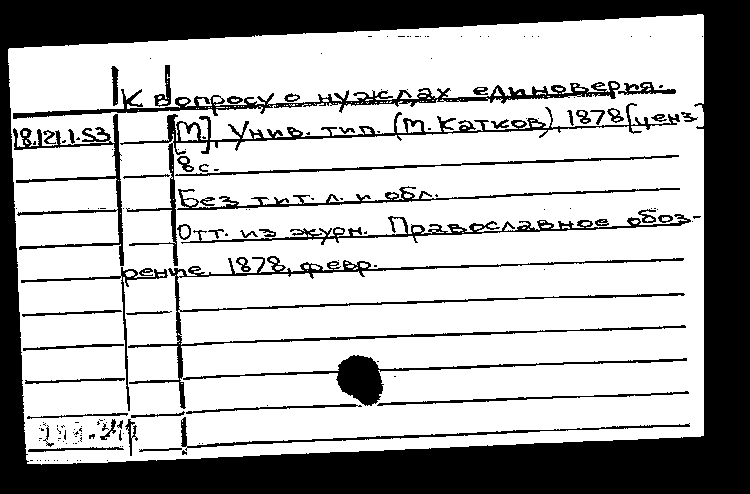 К вопросу о нуждах единоверия.
18.121.1.53 [М], Унив. тип. (М. Катков), 1878 [ценз]
8 с.
Без тит. л. и обл.
Отт. из журн. Православное обоз-
рение. 1878, февр.